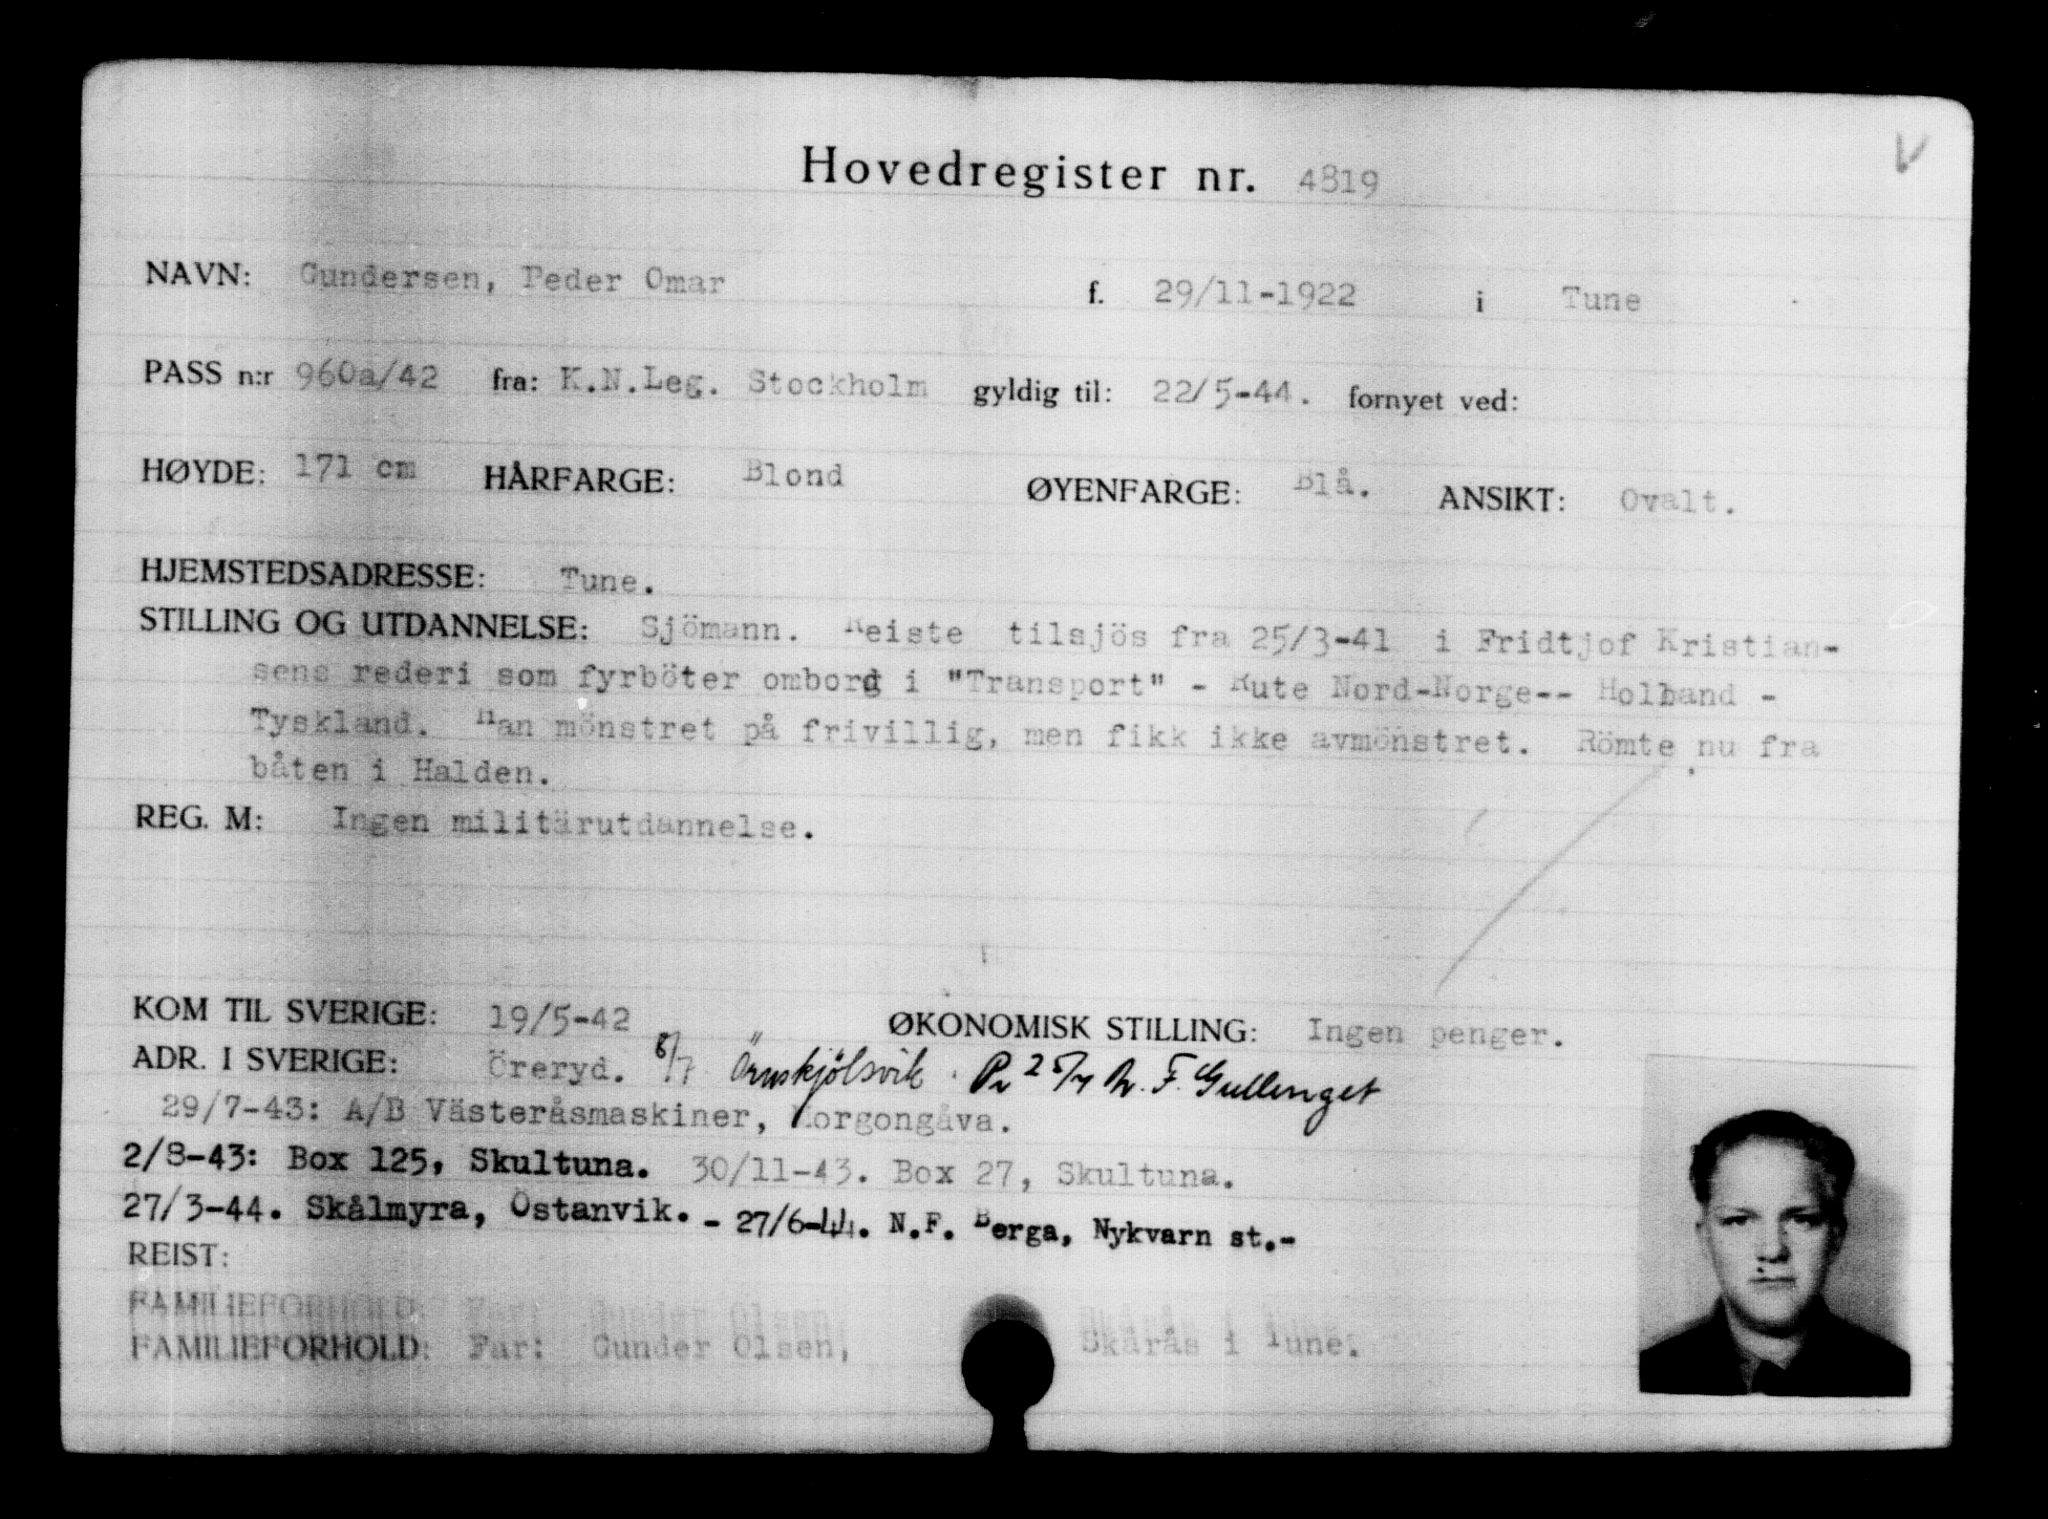 Hovedregister nr. 4819
NAVN: Gundersen, Peder Omar f. 29/11-1922 i Tune
PASS n:r 960a/42 fra: K.N.Leg. Stockholm gyldig til: 22/5-44. fornyet ved:
HØYDE: 171 cm HÅRFARGE: Blond ØYENFARGE: Blå. ANSIKT: Ovalt.
HJEMSTEDSADRESSE: Tune.
STILLING OG UTDANNELSE: Sjömann. Reiste tilsjös fra 25/3-41 i Fridtjof Kristian-
sens rederi som fyrböter ombord i "Transport" - Rute Nord-Norge-- Holland -
Tyskland. Han mönstret på frivillig, men fikk ikke avmönstret. Römte nu fra
båten i Halden.
REG. M: Ingen militärutdannelse.
KOM TIL SVERIGE: 19/5-42 ØKONOMISK STILLING: Ingen penger.
ADR. I SVERIGE: Öreryd. 8/7 Örnskjölsvik. Pr 25/7 N. F. Gullenget
29/7-43: A/B Västeråsmaskiner, Morgongåva.
2/8-43: Box 125, Skultuna. 30/11-43. Box 27, Skultuna.
27/3-44. Skålmyra, Östanvik. - 27/6-44. N.F. Berga, Nykvarn st.-
REIST:
FAMILIEFORHOLD: Far: Gunder Olsen,
FAMILIEFORHOLD: Far: Gunder Olsen, Skårås i Tune.